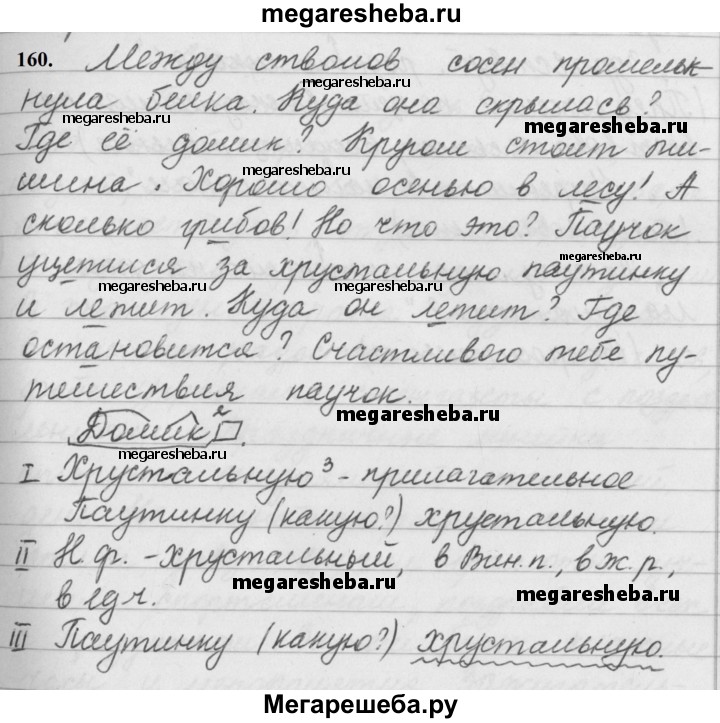 megaresheba.ru
160. Между стволов сосен промельк-
megaresheba.ru
нула белка. Куда она скрылась?
megaresheba.ru megaresheba.ru
Где её домик? Кругом стоит ти-
megaresheba.ru
шина. Хорошо осенью в лесу! А
сколько грибов! Но что это? Паучок
megaresheba.ru
уцепился за хрустальную паутинку
и летит. Куда он летит? Где
megaresheba.ru megaresheba.ru
остановится? Счастливого тебе пу-
тешествия паучок.
megaresheba.ru
Домик
megaresheba.ru
I Хрустальную³ - прилагательное
Паутинку (какую?) хрустальную.
megaresheba.ru
II Н.ф. - хрустальный, в Вин.п., в ж.р.,
megaresheba.ru
в ед.ч.
III Паутинку (какую?) хрустальную.
Мегарешеба.ру